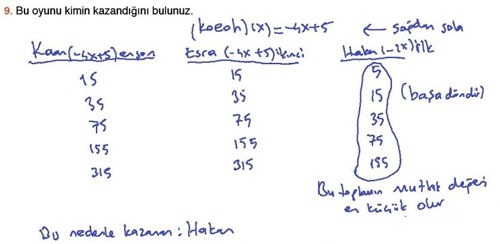 9. Bu oyunu kimin kazandığını bulunuz.
(koeoh)(x) = -4x+5 ← sağdan sola
Kaan(-4x+5) en son Esra (-4x+5) ikinci Hakan (-2x) ilk
15 15 5
35 35 15 (başa döndür)
75 75 35
155 155 75
315 315 155
Bu toplamın mutlak değeri
en küçük olur
Bu nedenle kazanan: Hakan